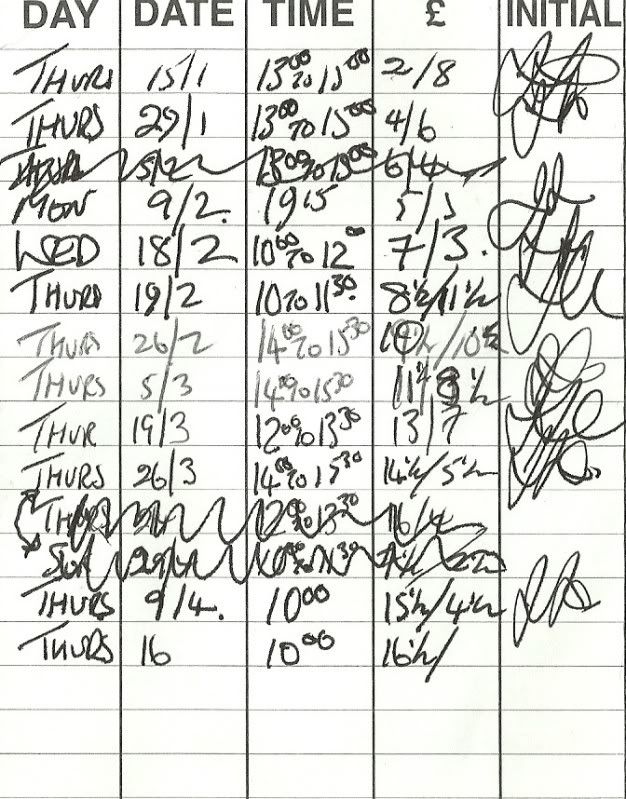 DAY DATE TIME £ INITIAL
THURS 15/1 13⁰⁰ to 15⁰⁰ 2/8
THURS 29/1 13⁰⁰ to 15⁰⁰ 4/6
THUR 5/2 13⁰⁰ to 15⁰⁰ 6/4
MON 9/2. 19¹⁵ 5/5
WED 18/2 10⁰⁰ to 12⁰⁰ 7/3.
THURS 19/2 10 to 11³⁰. 8½/11½
THURS 26/2 14⁰⁰ to 15³⁰ /10½
THURS 5/3 14⁰⁰ to 15³⁰ 11½ 8½
THUR 19/3 12⁰⁰ to 13³⁰ 13/7
THURS 26/3 14⁰⁰ to 15³⁰ 14½/5½
THURS 12⁰⁰ to 13³⁰ 16/4
SUN
THURS 9/4. 10⁰⁰ 15½/4½
THURS 16 10⁰⁰ 16½/